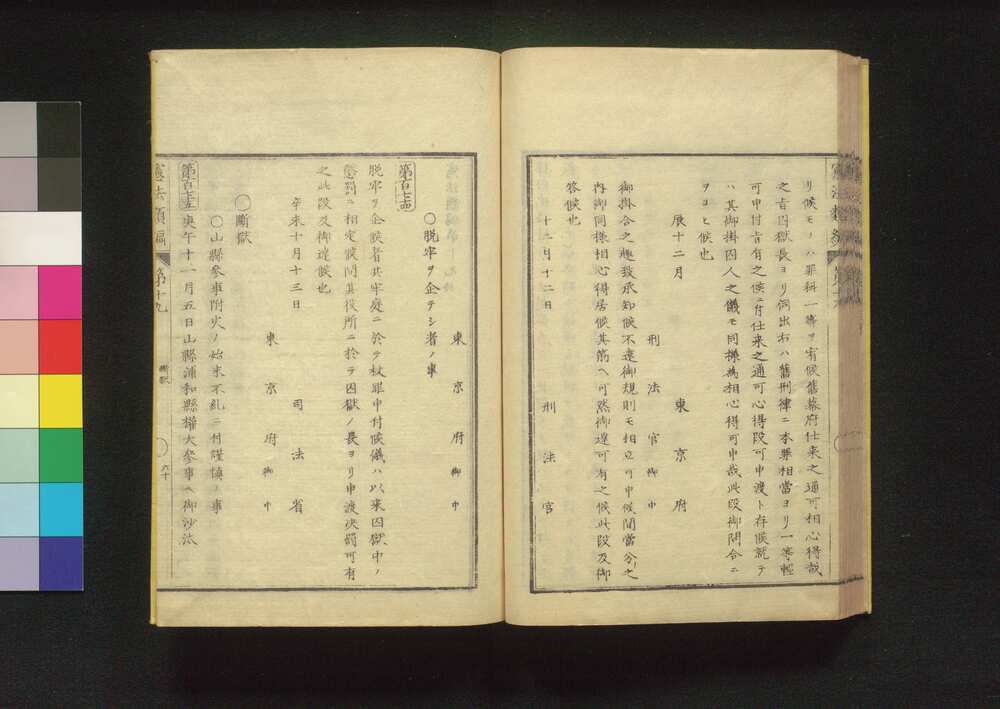 リ候モノハ罪科一等ヲ宥候舊幕府仕来之通可相心得哉
之旨囚獄長ヨリ伺出右ハ舊刑律ニ本罪相當ヨリ一等輕
可申付旨有之候ニ付仕来之通可心得段可申渡ト存候就テ
ハ其御掛囚人之儀モ同様為相心得可申哉此段御問合ニ
ヲヨヒ候也
辰十二月
東京府
刑法官御中
御掛合之趣致承知候不違御規則モ相立可申候間當分之
内御同様相心得居候其筋ヘ可然御達可有之候此段及御
答候也
十二月十二日
刑法官
東京府御中
○脱牢ヲ企テシ者ノ事
第百七十四
脱牢ヲ企候者共牢庭ニ於テ杖罪申付候儀ハ以来囚獄中ノ
懲罰ニ相定候間其役所ニ於テ囚獄ノ長ヨリ申渡決罰可有
之此段及御達候也
辛未十月十三日
司法省
東京府御中
○斷獄
○山縣参事附火ノ始末不乱ニ付謹慎ノ事
第百七十五
庚午十一月五日山縣浦和縣權大参事ヘ御沙汰
憲法類編
第十九
斷獄
六十